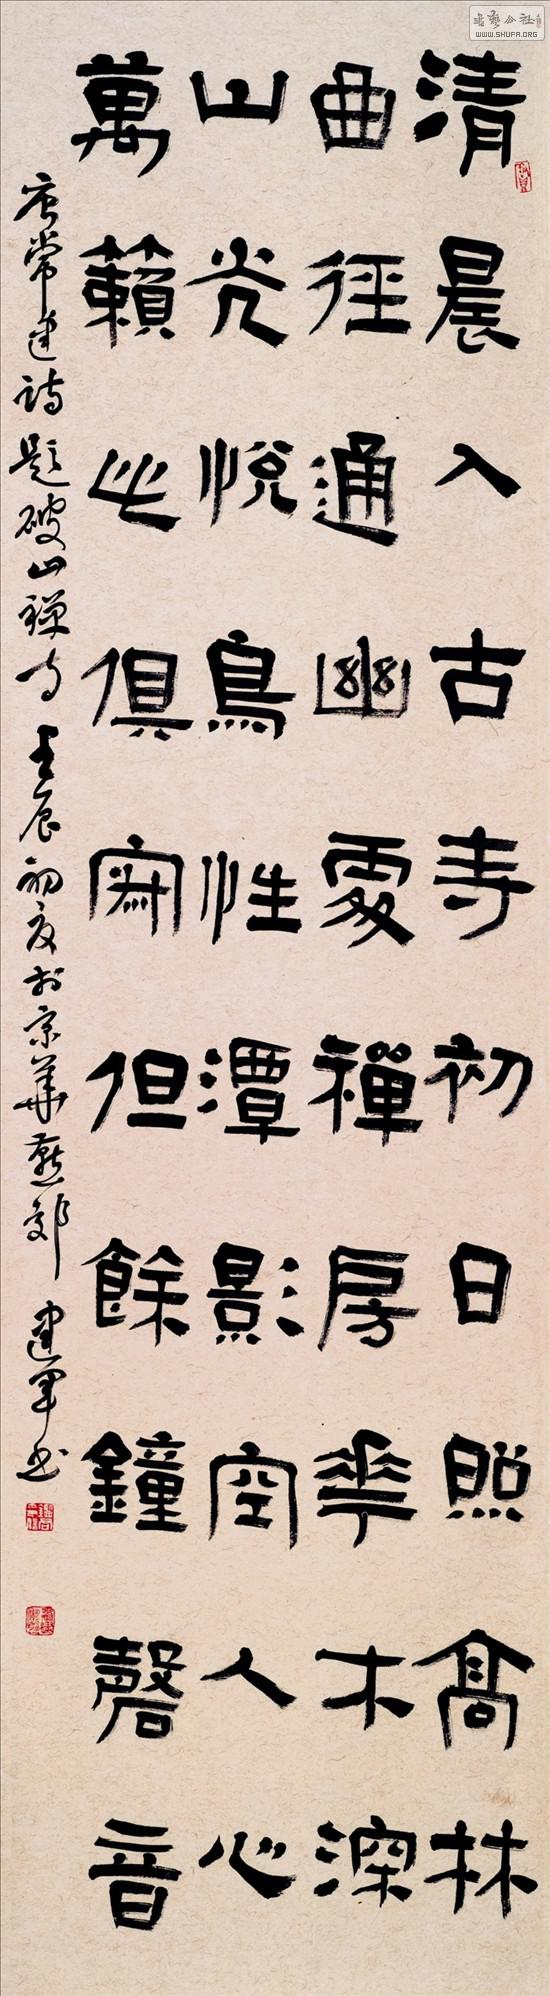 清晨入古寺初日照高林
曲径通幽處禪房花木深
山光悦鳥性潭影空人心
萬籟此俱寂但餘鐘磬音
唐常建詩題破山禅寺壬辰初夏於京華燕郊建军书
WWW.SHUFA.ORG